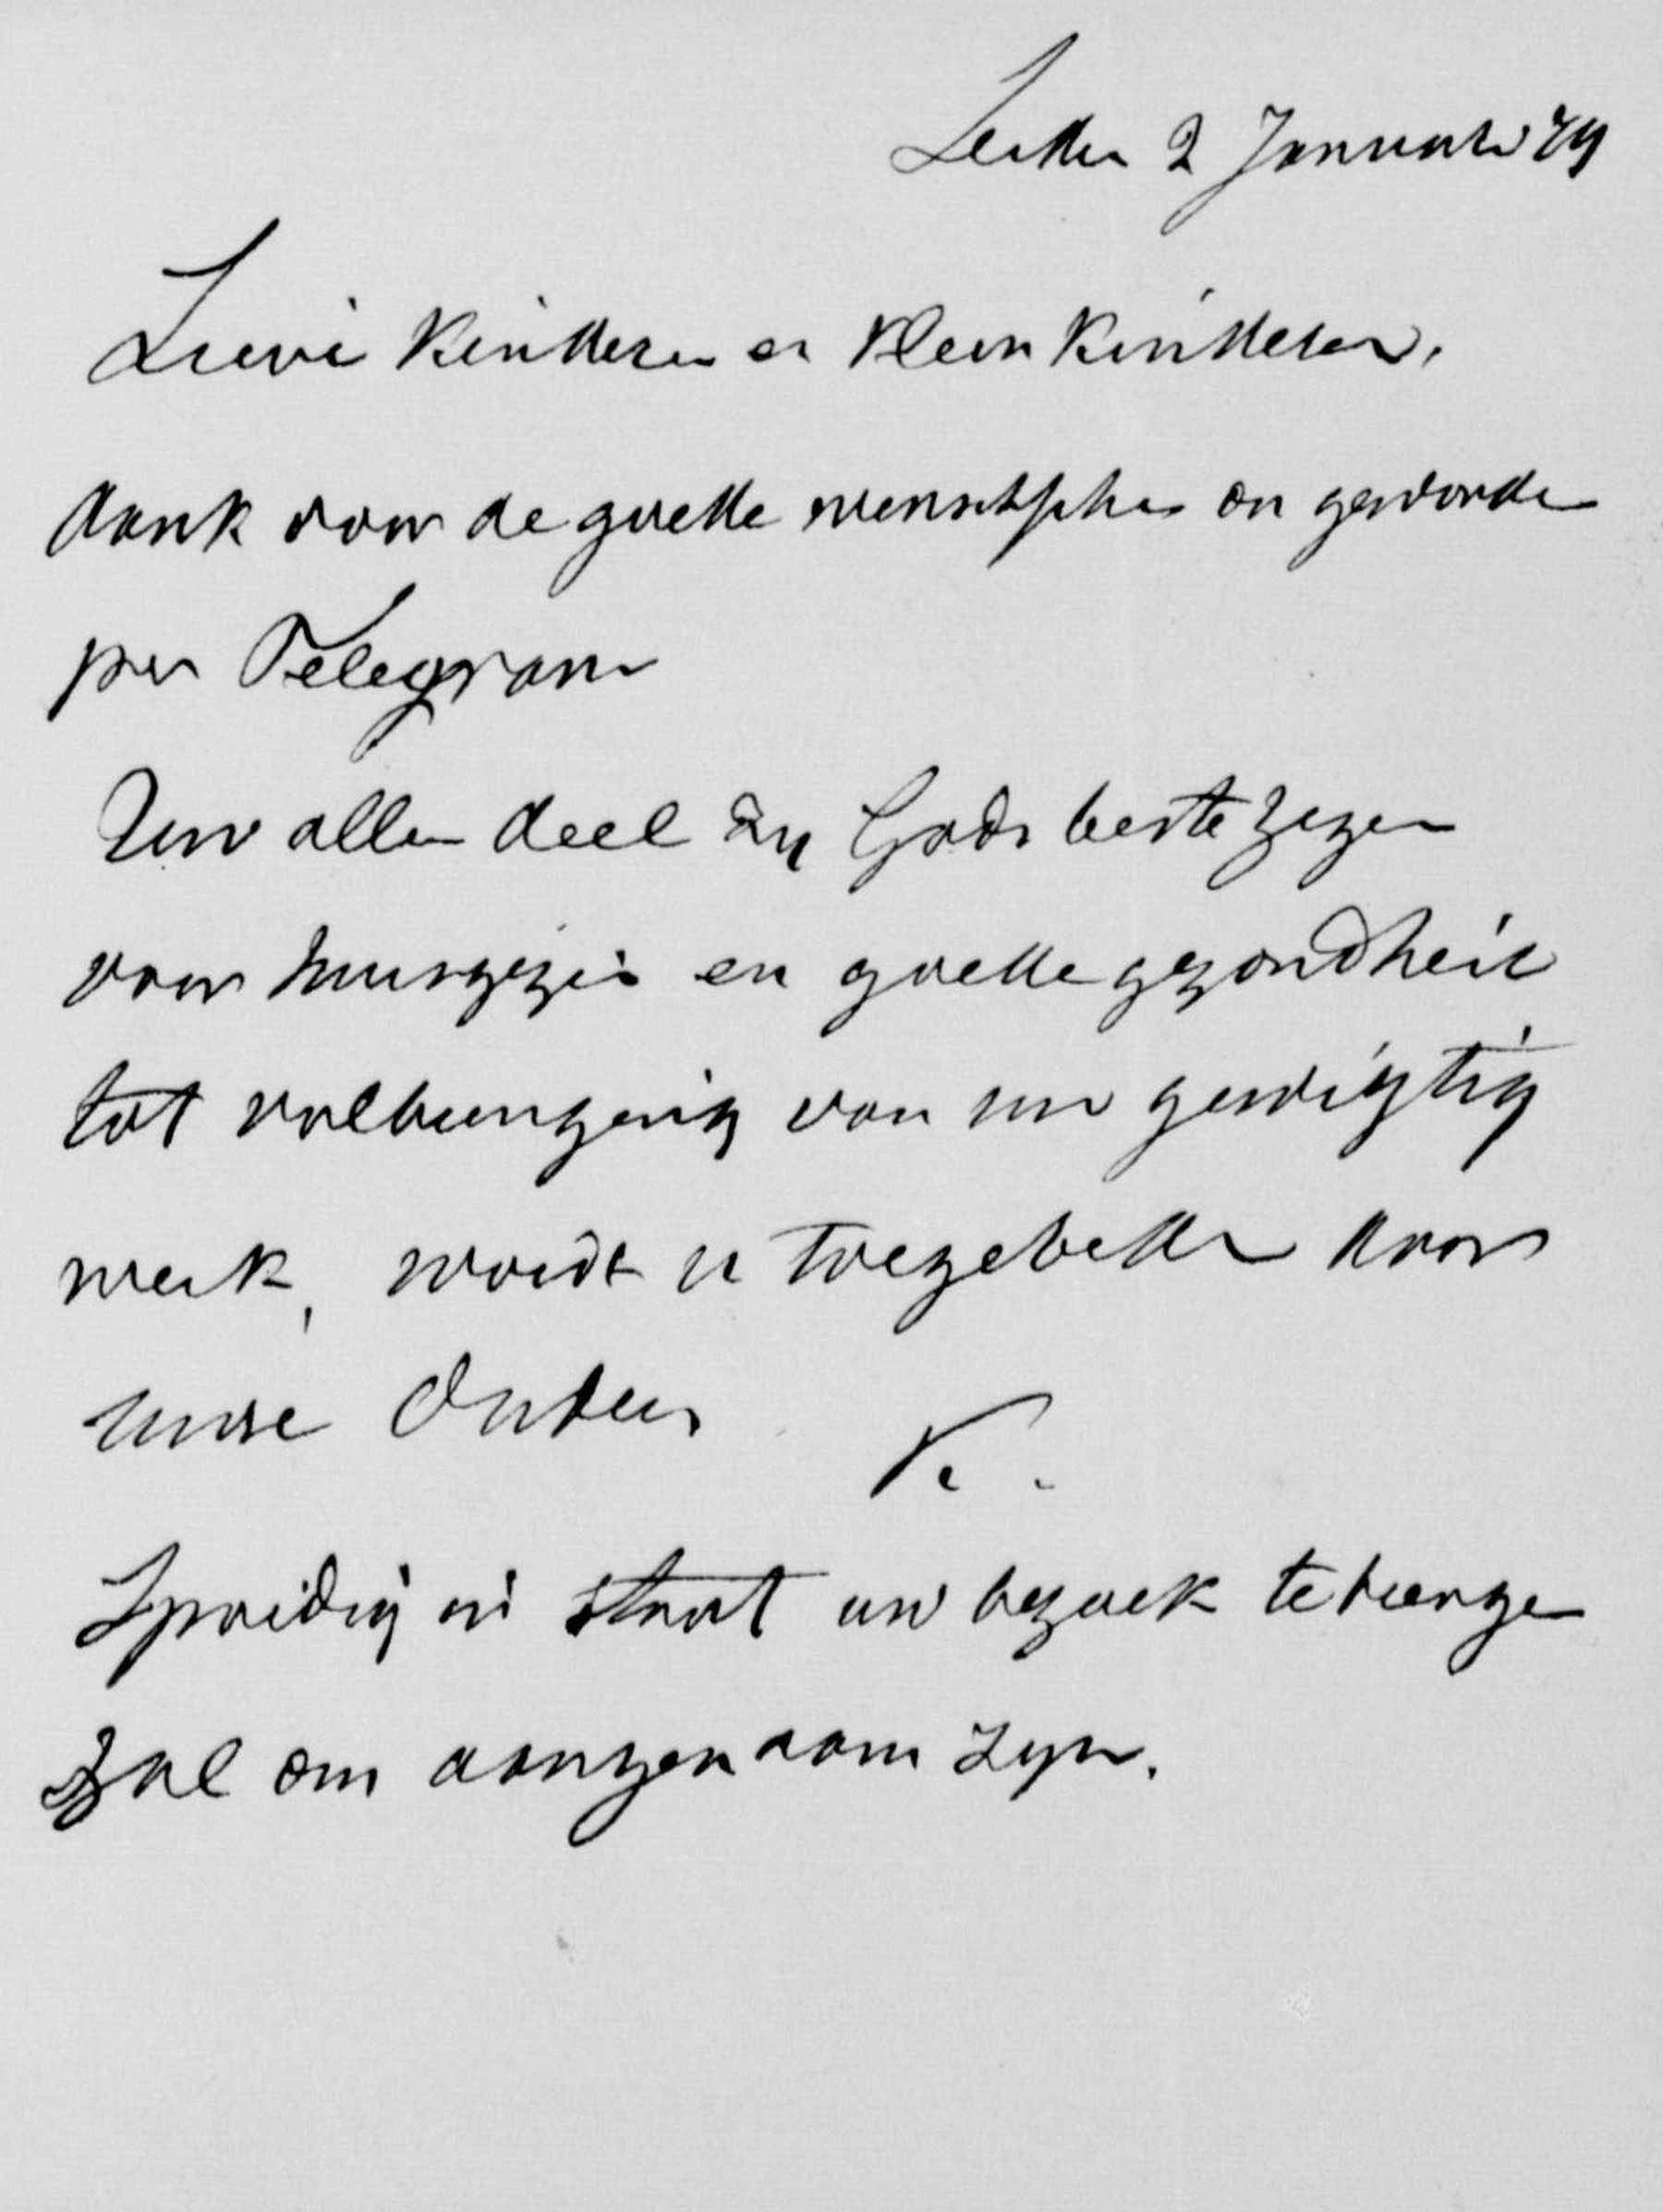 Leiden 2 Januari 79
Lieve Kinderen en Kleinkinderen,
dank voor de goede wenschen on geworden
per Telegram
Uw aller deel zy Gods beste zegen
voor huisgezin en goede gezondheid
tot volbrenging van uw gewigtig
werk, wordt u toegebeden door
uwe Ouders K.
Spoedig in staat uw bezoek te brengen
zal ons aangenaam zyn.